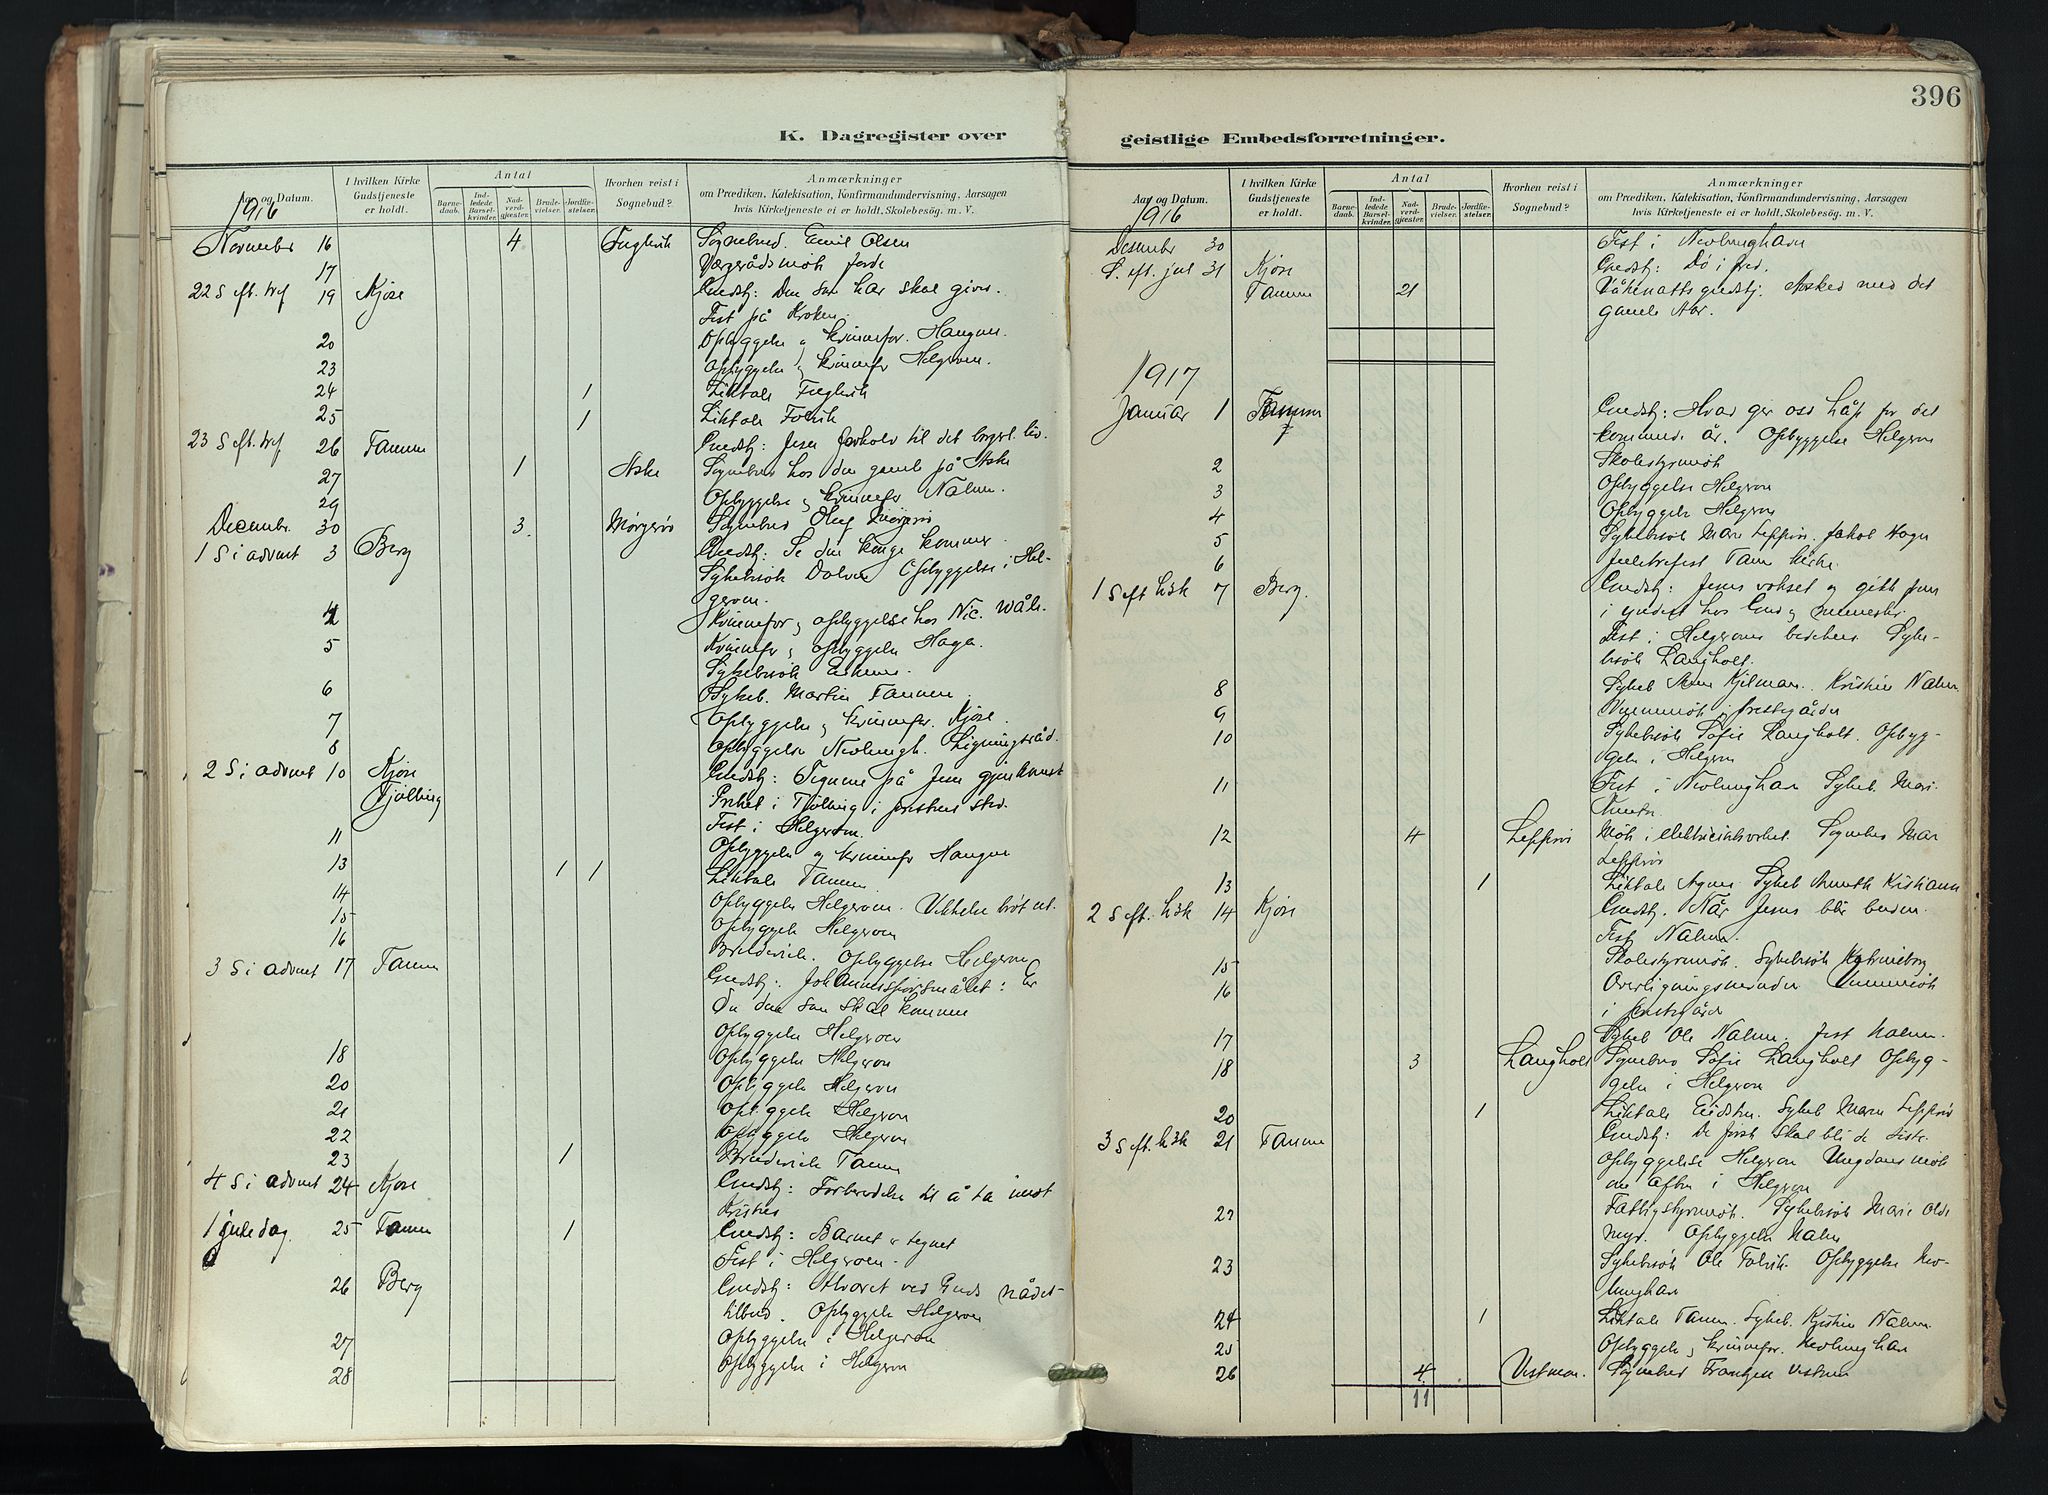 396
K. Dagregister over
geistlige Embedsforretninger.
Aar og Datum.
I hvilken Kirke Gudstjeneste er holdt.
Antal
Barnedaab.
Indledede Barselkvinder.
Nadverdgjester.
Brudevielser.
Jordfæstelser.
Hvorhen reist i Sognebud?
Anmærkninger
om Prædiken, Katekisation, Konfirmandundervisning, Aarsagen
hvis Kirketjeneste ei er holdt, Skolebesøg. m. V.
1916
November 16 4 Fuglevik Sognebud. Emil Olsen
17 Værgerådsmøte
22 S eft. tref 19 Kjose Gudstj: Den som har skal gives.
Fest på Kroken.
20 Opbyggelse og kvinnefor. Haugene.
23 Opbyggelse og kvinnefor Helgeroen.
24 1 Liktale Fuglevik
25 1 Liktale Folvik
23 S eft. tref 26 Tanum Gudstj: Jesu forhold til det borgerl. liv.
27 1 Aske Sognebud hos den gamle på Aske
29 Opbyggelse og kvinnefor Nalum.
30 3 Sognebud Oluf
December
1 S i advent 3 Berg Gudstj: Se din konge kommer
Sykebesøk Dolven Opbyggelse i Hel-
geroen.
4 Kvinnefor og opbyggelse hos Nic.
5 Kvinnefor og opbyggelse Hagen.
Sykebesøk
6 Sykeb. Martin Tanum.
7 Opbyggelse og kvinnefor. Kjose.
8 Opbyggelse Nevlungh. Ligningsråd.
2 S i advent 10 Kjose Gudstj: Tegnene på Jesu gjenkomst
Tjølling Preket i Tjølling i prestens sted.
Fest i Helgeroen.
11 Opbyggelse og kvinnefor Haugene
13 1 1 Liktale Tanum
14 Opbyggelse Helgeroen.
15 Opbyggelse Helgeroen
16 Brudevielse. Opbyggelse Helgeroen
3 S i advent 17 Tanum Gudstj: Johannesspørsmålet: Er
Du den som skal komme
Opbyggelse Helgeroen
18 Opbyggelse Helgeroen
20 Opbyggelse Helgeroen
21 Opbyggelse Helgeroen
22 Opbyggelse Helgeroen
23 1 Brudevielse Tanum
4 S i advent 24 Kjose Gudstj: Forberedelse til å ta imot
Kristus
1 juledag. 25 Tanum 1 Gudstj: Barnet er tegnet
Fest i Helgeroen.
26 Berg Gudstj: Alvoret ved Guds nådes-
tilbud. Opbyggelse Helgeroen
27 Opbyggelse i Helgeroen
28 Opbyggelse i Helgeroen
Aar og Datum.
I hvilken Kirke Gudstjeneste er holdt.
Antal
Barnedaab.
Indledede Barselkvinder.
Nadverdgjester.
Brudevielser.
Jordfæstelser.
Hvorhen reist i Sognebud?
Anmærkninger
om Prædiken, Katekisation, Konfirmandundervisning, Aarsagen
hvis Kirketjeneste ei er holdt, Skolebesøg. m. V.
1916
Desember 30 Fest i Nevlunghavn
S. eft. jul 31 Kjose Gudstj: Dø i fred.
Tanum 21 Våkenattsgudstj. Avsked med det
gamle år.
1917
Januar 1 Tanum Gudstj: Hvad gir oss håp for det
kommende år. Opbyggelse Helgeroen
2 Skolestyremøte
3 Opbyggelse Helgeroen
4 Opbyggelse Helgeroen
5 Sykebesøk Jakob Hagen
6 Juletrefest Tanum kirke.
1 S eft h3k 7 Berg. Gudstj: Jesus vokset og gikk frem
i yndest hos Gud og mennesker.
Fest i Helgeroens bedehus. Syke-
besøk Langholt.
8 Sykeb Kristine Nalum.
9 i prestegården
10 Sykebesøk Sofie Langholt. Opbyg-
gelse i Helgeroen
11 Fest i Nevlunghavn Sykeb. Mari
12 4 Møte i elektricitetsverket. Sognebud
13 1 Liktale Sykeb Kristiansen
2 S eft. h3k 14 Kjose Gudstj. Når Jesus blir buden.
Fest Nalum.
15 Skolestyremøte. Sykebesøk
16 Overligningsnevnden
i prestegården
17 Sykeb Ole Nalum. Fest Nalum.
18 3 Langholt Sognebud Sofie Langholt Opbyg-
gelse i Helgeroen
20 1 Liktale Sykeb
3 S eft. h3k 21 Tanum Gudstj: De første skal bli de siste.
Opbyggelse Helgeroen Ungdomsmøte
om aften i Helgeroen
22 Fattigstyremøte. Sykebesøk Marie Olde
myr. Opbyggelse Nalum
23 Sykebesøk Ole Folvik. Opbyggelse Nev-
lunghavn
24 1 Liktale Tanum. Sykeb. Kristine Nalum.
25 Opbyggelse og kvinnefor. Nevlunghavn
26 4 Sognebud
11